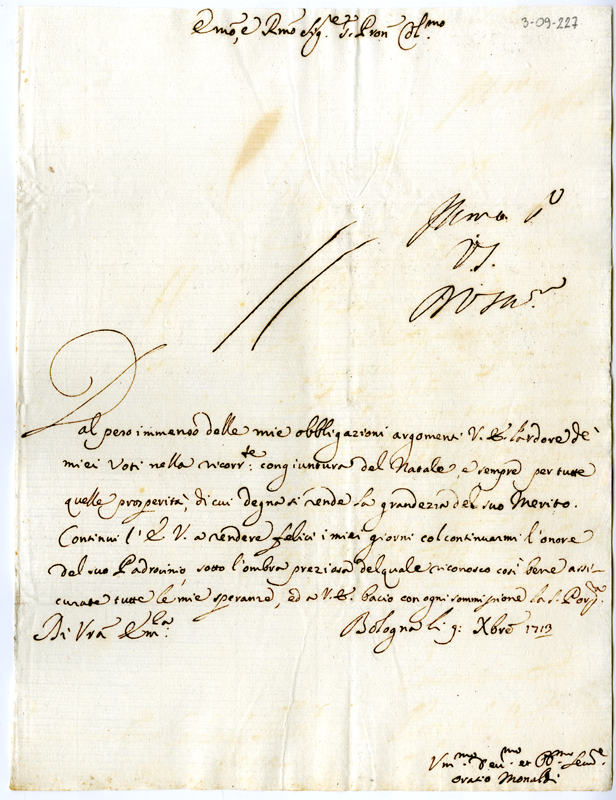 Emo, e Rmo Sigre, e Pron Colmo
3-09-227
Dal peso immenso delle mie obbligazioni argomenti V. E. l'ardore de'
miei Voti nella ricorrte: congiuntura del Natale, e sempre per tutte
quelle prosperità, di cui degna si rende la grandezza del suo Merito.
Continui l'E. V. a rendere felici i miei giorni col continuarmi l'onore
del suo Padrocinio, sotto l'ombra preziosa del quale riconosco così bene assi-
curate tutte le mie speranze, ed a V. E. bacio con ogni sommissione la S. Porpa.
Di Vra Emza.
Bologna li 9: Xbre 1713
Vmmo Devmo et Obmo Serve
Oratio Monaldi